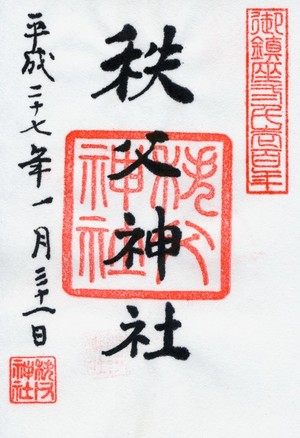 御鎮座弐千壱百年
秩父神社
秩父
神社
平成二十七年一月三十一日
秩父
神社